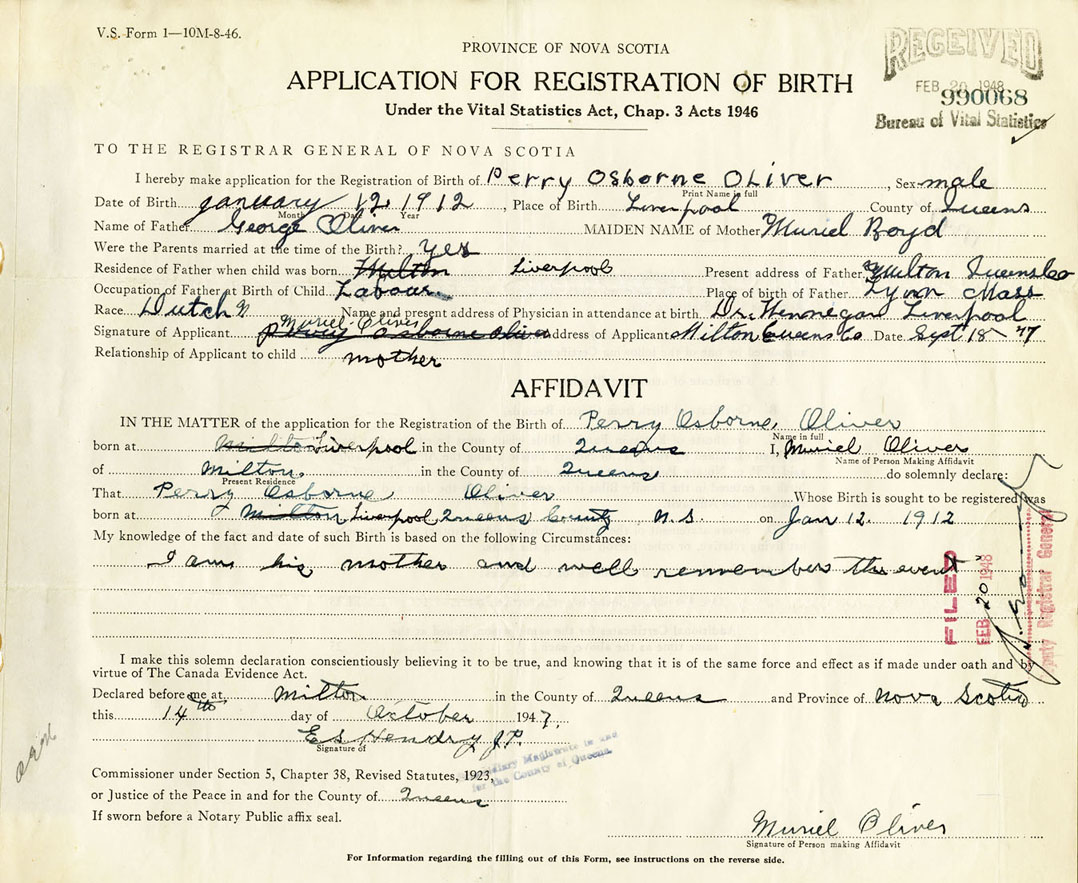 V.S. Form 1—10M-8-46.
PROVINCE OF NOVA SCOTIA
RECEIVED
APPLICATION FOR REGISTRATION OF BIRTH
FEB 20 1948
990068
Under the Vital Statistics Act, Chap. 3 Acts 1946
Bureau of Vital Statistics
TO THE REGISTRAR GENERAL OF NOVA SCOTIA
I hereby make application for the Registration of Birth of Perry Osborne Oliver, Sex male
Print Name in full
Date of Birth January 12 1912, Place of Birth Liverpool County of Queens
Month Date Year
Name of Father George Oliver MAIDEN NAME of Mother Muriel Boyd
Were the Parents married at the time of the Birth? Yes
Residence of Father when child was born Milton Liverpool Present address of Father Milton Queens Co
Occupation of Father at Birth of Child Labour Place of birth of Father Lynn Mass
Race Dutch Name and present address of Physician in attendance at birth Dr. Hennegar Liverpool
Muriel Oliver
Signature of Applicant Perry Osborne Oliver Address of Applicant Milton Queens Co Date Sept 18 - 47
Relationship of Applicant to child mother
AFFIDAVIT
IN THE MATTER of the application for the Registration of the Birth of Perry Osborne Oliver
Name in full
born at Milton Liverpool in the County of Queens I, Muriel Oliver
Name of Person Making Affidavit
of Milton in the County of Queens do solemnly declare:
Present Residence
That Perry Osborne Oliver Whose Birth is sought to be registered was
born at Milton Liverpool, Queens County, N.S. on Jan 12. 1912
My knowledge of the fact and date of such Birth is based on the following Circumstances:
I am his mother and well remembers the event
FILED
FEB 20 1948
Deputy Registrar General
I make this solemn declaration conscientiously believing it to be true, and knowing that it is of the same force and effect as if made under oath and by
virtue of The Canada Evidence Act.
Declared before me at Milton in the County of Queens and Province of Nova Scotia
this 14th day of October 1947.
E S Hendry J.P.
Signature of
Stipendiary Magistrate in and
for the County of Queens.
Commissioner under Section 5, Chapter 38, Revised Statutes, 1923,
or Justice of the Peace in and for the County of Queens
If sworn before a Notary Public affix seal.
Muriel Oliver
Signature of Person making Affidavit
For Information regarding the filling out of this Form, see instructions on the reverse side.